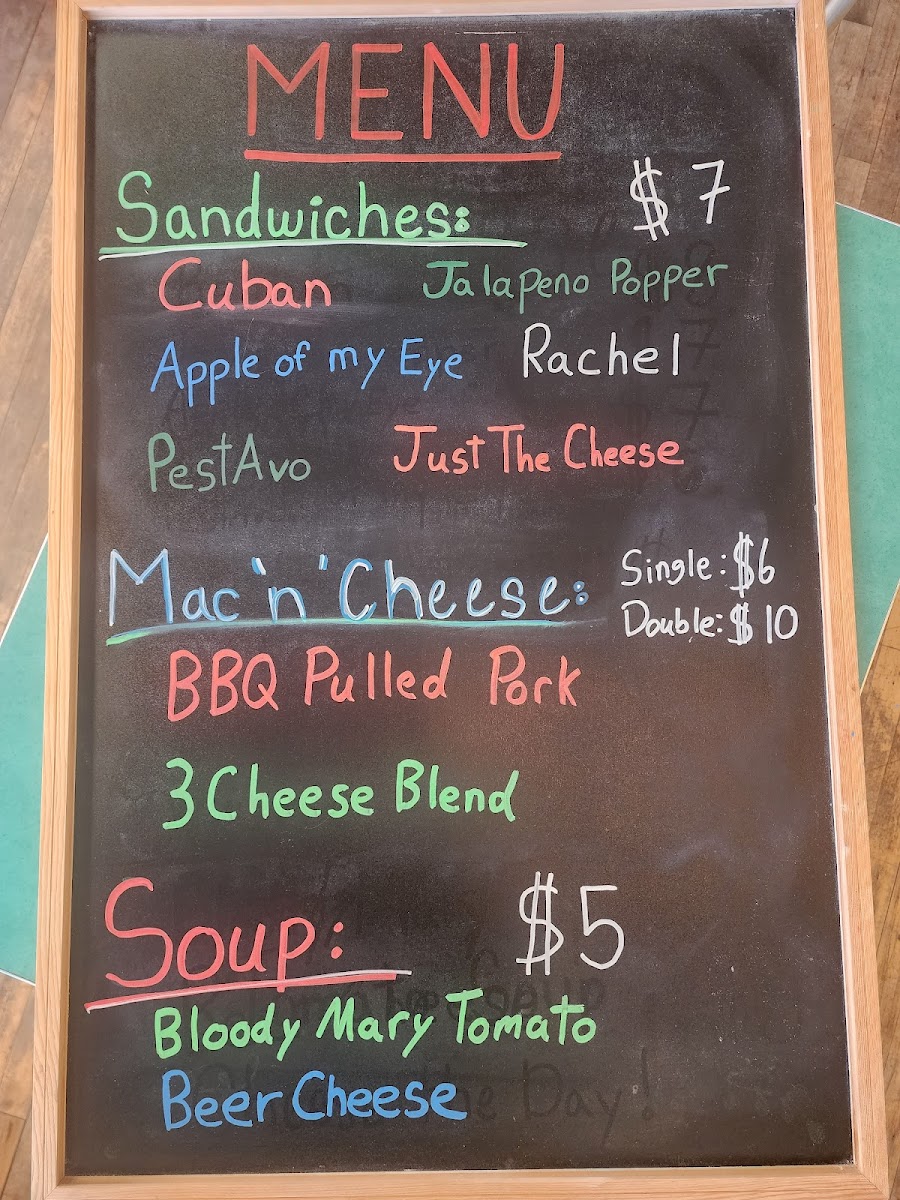 MENU
Sandwiches: $7
Cuban Jalapeno Popper
Apple of my Eye Rachel
PestAvo Just The Cheese
Mac 'n' Cheese: Single: $6
Double: $10
BBQ Pulled Pork
3 Cheese Blend
Soup: $5
Bloody Mary Tomato
Beer Cheese